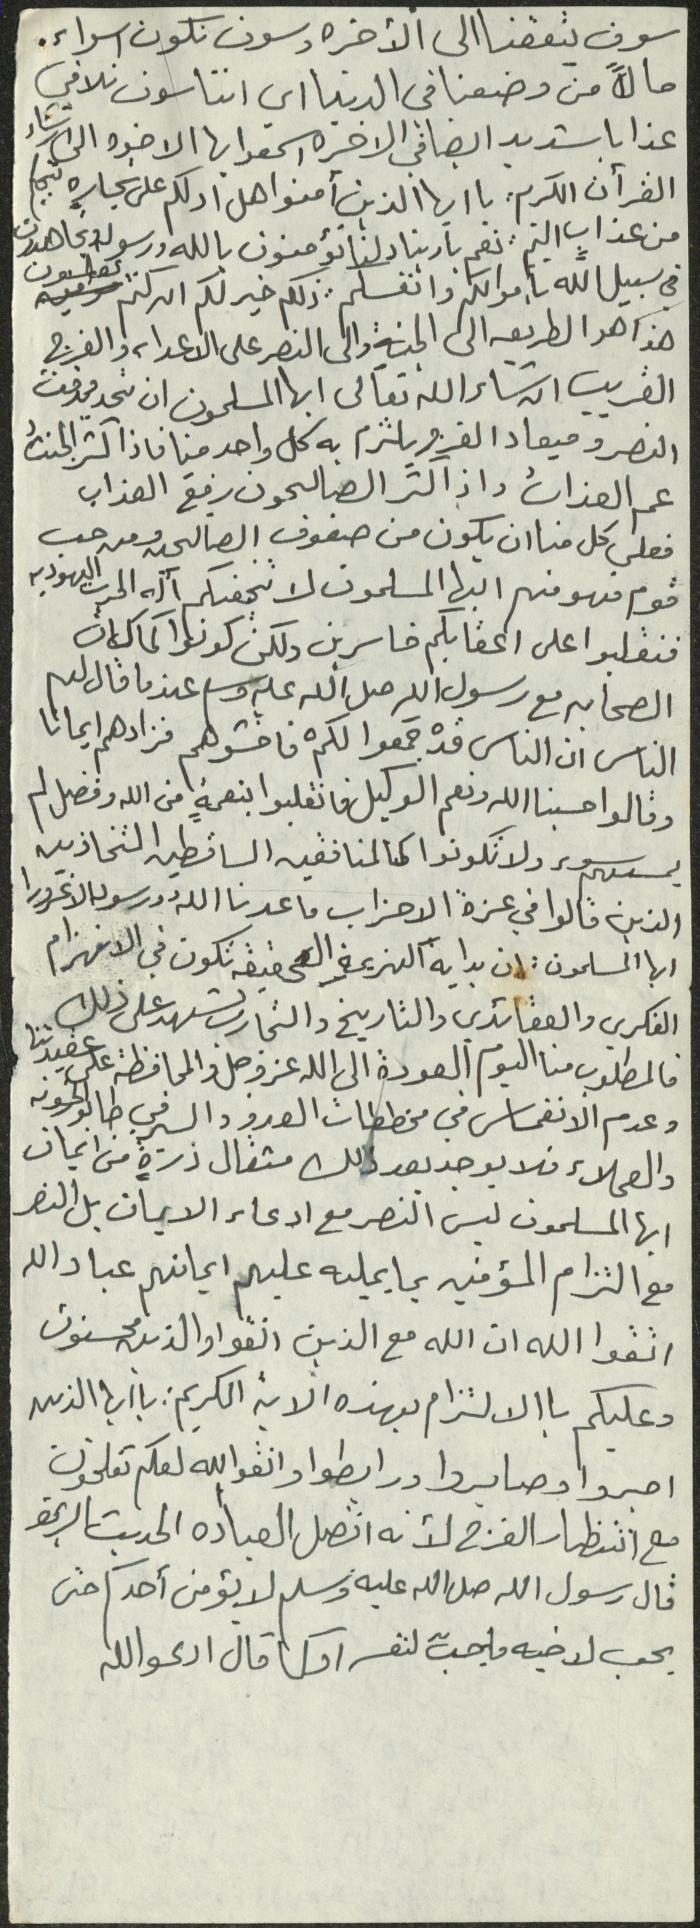 سوف يثقفنا الى الأخره وسوف نكون اسواء.
حالاً من وضعنا في الدنيا اي اننا سوف نلاقي
عذابا شديد ايضا في الاخره اسمعوا ايها الاخوه الى نداء
القرأن الكريم: يا ايها الذين أمنوا هل ادلكم على تجاره تنجيكم
من عذاب اليم: نعم يا ربنا دلنا تؤمنون بالله ورسوله وتجاهدون
في سبيل الله بأموالكم وانفسكم: ذلكم خير لكم ان كنتم تعلمون
هذا هو الطريق الى الجنة والى النصر على الاعداء والفرج
القريب ان شاء الله تعالى ايها المسلمون ان تحديد وقت
النصر وميعاد الفرج يلتزم به كل واحد منا فاذا كثر الخبث
عم العذاب واذا كثر الصالحون رفع العذاب
فعلى كل منا ان يكون من صفوف الصالحين ومن حب
قوم فهو منهم ايها المسلمون لا تخفنكم آله الحرب اليهوديه
فنقلبوا على اعقابكم خاسرين ولكن كونوا كما كان
الصحابه مع رسول الله صل الله عليه وسلم عندما قال لهم
الناس ان الناس قد جمعوا لكم فاخشوهم فزادهم ايمانا
وقالوا حسبنا الله ونعم الوكيل فانقلبوا بنعمةٍ من الله وفضل لم
يمسسهم سوء ولا تكونوا كالمنافقين الساقطين المتخاذلين
الذين قالوا في غزة الاحزاب ما عدنا الله ورسوله الا غرورا
ايها المسلمون: ان بداية الهزيمة في الحقيقه تكون في الانهزام
الفكري والعقائدي والتاريخ والتجارب تشهد على ذلك
فالمطلوب منا اليوم العودة الى الله عز وجل والمحافظة على عقيدتنا
وعدم الانغماس في مخططات العدو والسير في طابور الخونه
والعملاء فلا يوجد بعد ذلك مثقال ذرةٍ من ايمان
ايها المسلمون ليس النصر مع ادعاء الايمان بل النصر
مع التزام المؤمنين بما يمليه عليهم ايمانهم عباد الله
اتقوا الله ان الله مع الذين اتقوا والذين محسنون
وعليكم باالالتزام بهذه الاية الكريم: يا ايها الذين
اصبروا وصابروا ورابطوا واتقوا الله لعلكم تفلحون
مع انتظار الفرج لأنه افضل العباده الحديث الشريف
قال رسول الله صل الله عليه وسلم لا يؤمن أحدكم حتى
يحب لاخيه ما يحب لنفسه او كما قال ادعو الله